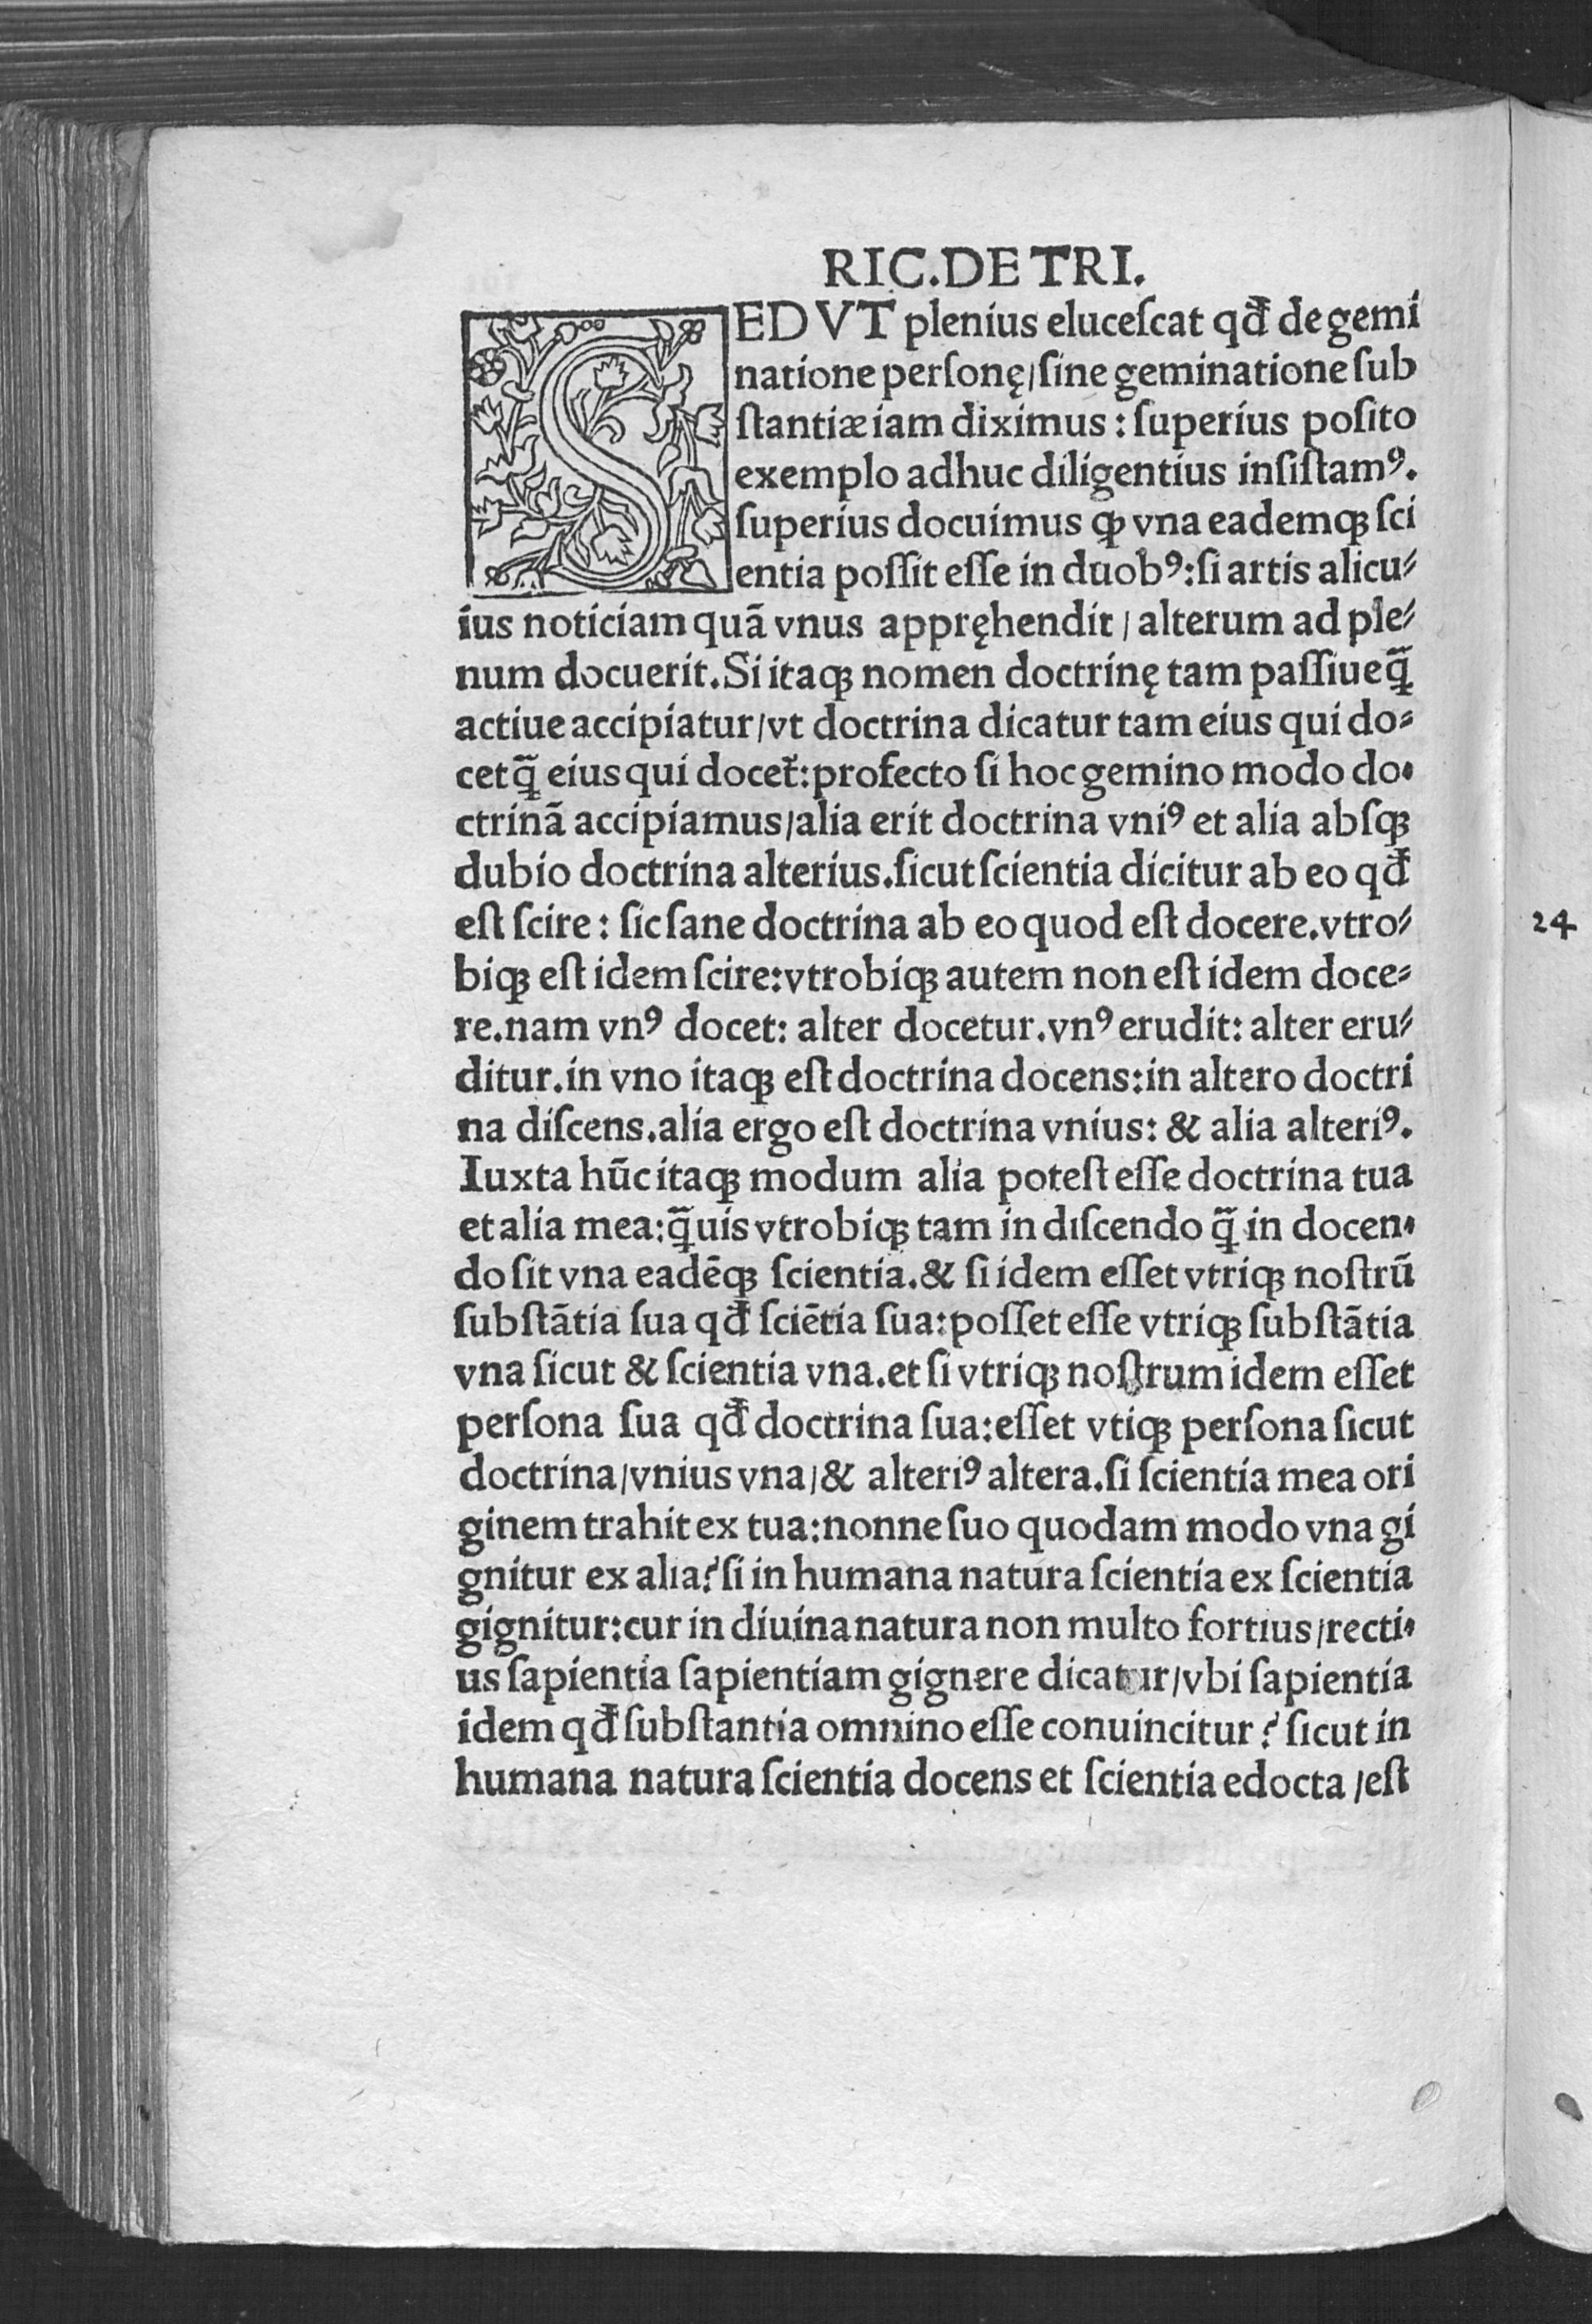 RIC.DE TRI.
SED VT plenius eluceſcat qđ de gemi
natione perſonę/ſine geminatione ſub
ſtantiæ iam diximus : ſuperius poſito
exemplo adhuc diligentius inſiſtamꝰ.
ſuperius docuimus ꝙ vna eademqꝫ ſci
entia poſſit eſſe in duobꝰ:ſi artis alicu⸗
ius noticiam quã vnus appręhendit / alterum ad ple⸗
num docuerit.Si itaqꝫ nomen doctrinę tam paſſiue q̃
actiue accipiatur/vt doctrina dicatur tam eius qui do⸗
cet q̃ eius qui docet̃:profecto ſi hoc gemino modo do⸗
ctrinã accipiamus/alia erit doctrina vniꝰ et alia abſqꝫ
dubio doctrina alterius.ſicut ſcientia dicitur ab eo qđ
eſt ſcire : ſic ſane doctrina ab eo quod eſt docere.vtro⸗
biqꝫ eſt idem ſcire:vtrobiqꝫ autem non eſt idem doce⸗
re.nam vnꝰ docet: alter docetur.vnꝰ erudit: alter eru⸗
ditur.in vno itaqꝫ eſt doctrina docens:in altero doctri
na diſcens.alia ergo eſt doctrina vnius: & alia alteriꝰ.
Iuxta hũc itaqꝫ modum alia poteſt eſſe doctrina tua
et alia mea:q̃uis vtrobiqꝫ tam in diſcendo q̃ in docen⸗
do ſit vna eadẽqꝫ ſcientia.& ſi idem eſſet vtriqꝫ noſtrũ
ſubſtãtia ſua qđ ſciẽtia ſua:poſſet eſſe vtriqꝫ ſubſtãtia
vna ſicut & ſcientia vna.et ſi vtriqꝫ noſtrum idem eſſet
perſona ſua qđ doctrina ſua:eſſet vtiqꝫ perſona ſicut
doctrina/vnius vna/& alteriꝰ altera.ſi ſcientia mea ori
ginem trahit ex tua:nonne ſuo quodam modo vna gi
gnitur ex alia?ſi in humana natura ſcientia ex ſcientia
gignitur:cur in diuina natura non multo fortius/recti⸗
us ſapientia ſapientiam gignere dicatur/vbi ſapientia
idem qđ ſubſtantia omnino eſſe conuincitur? ſicut in
humana natura ſcientia docens et ſcientia edocta /eſt
24